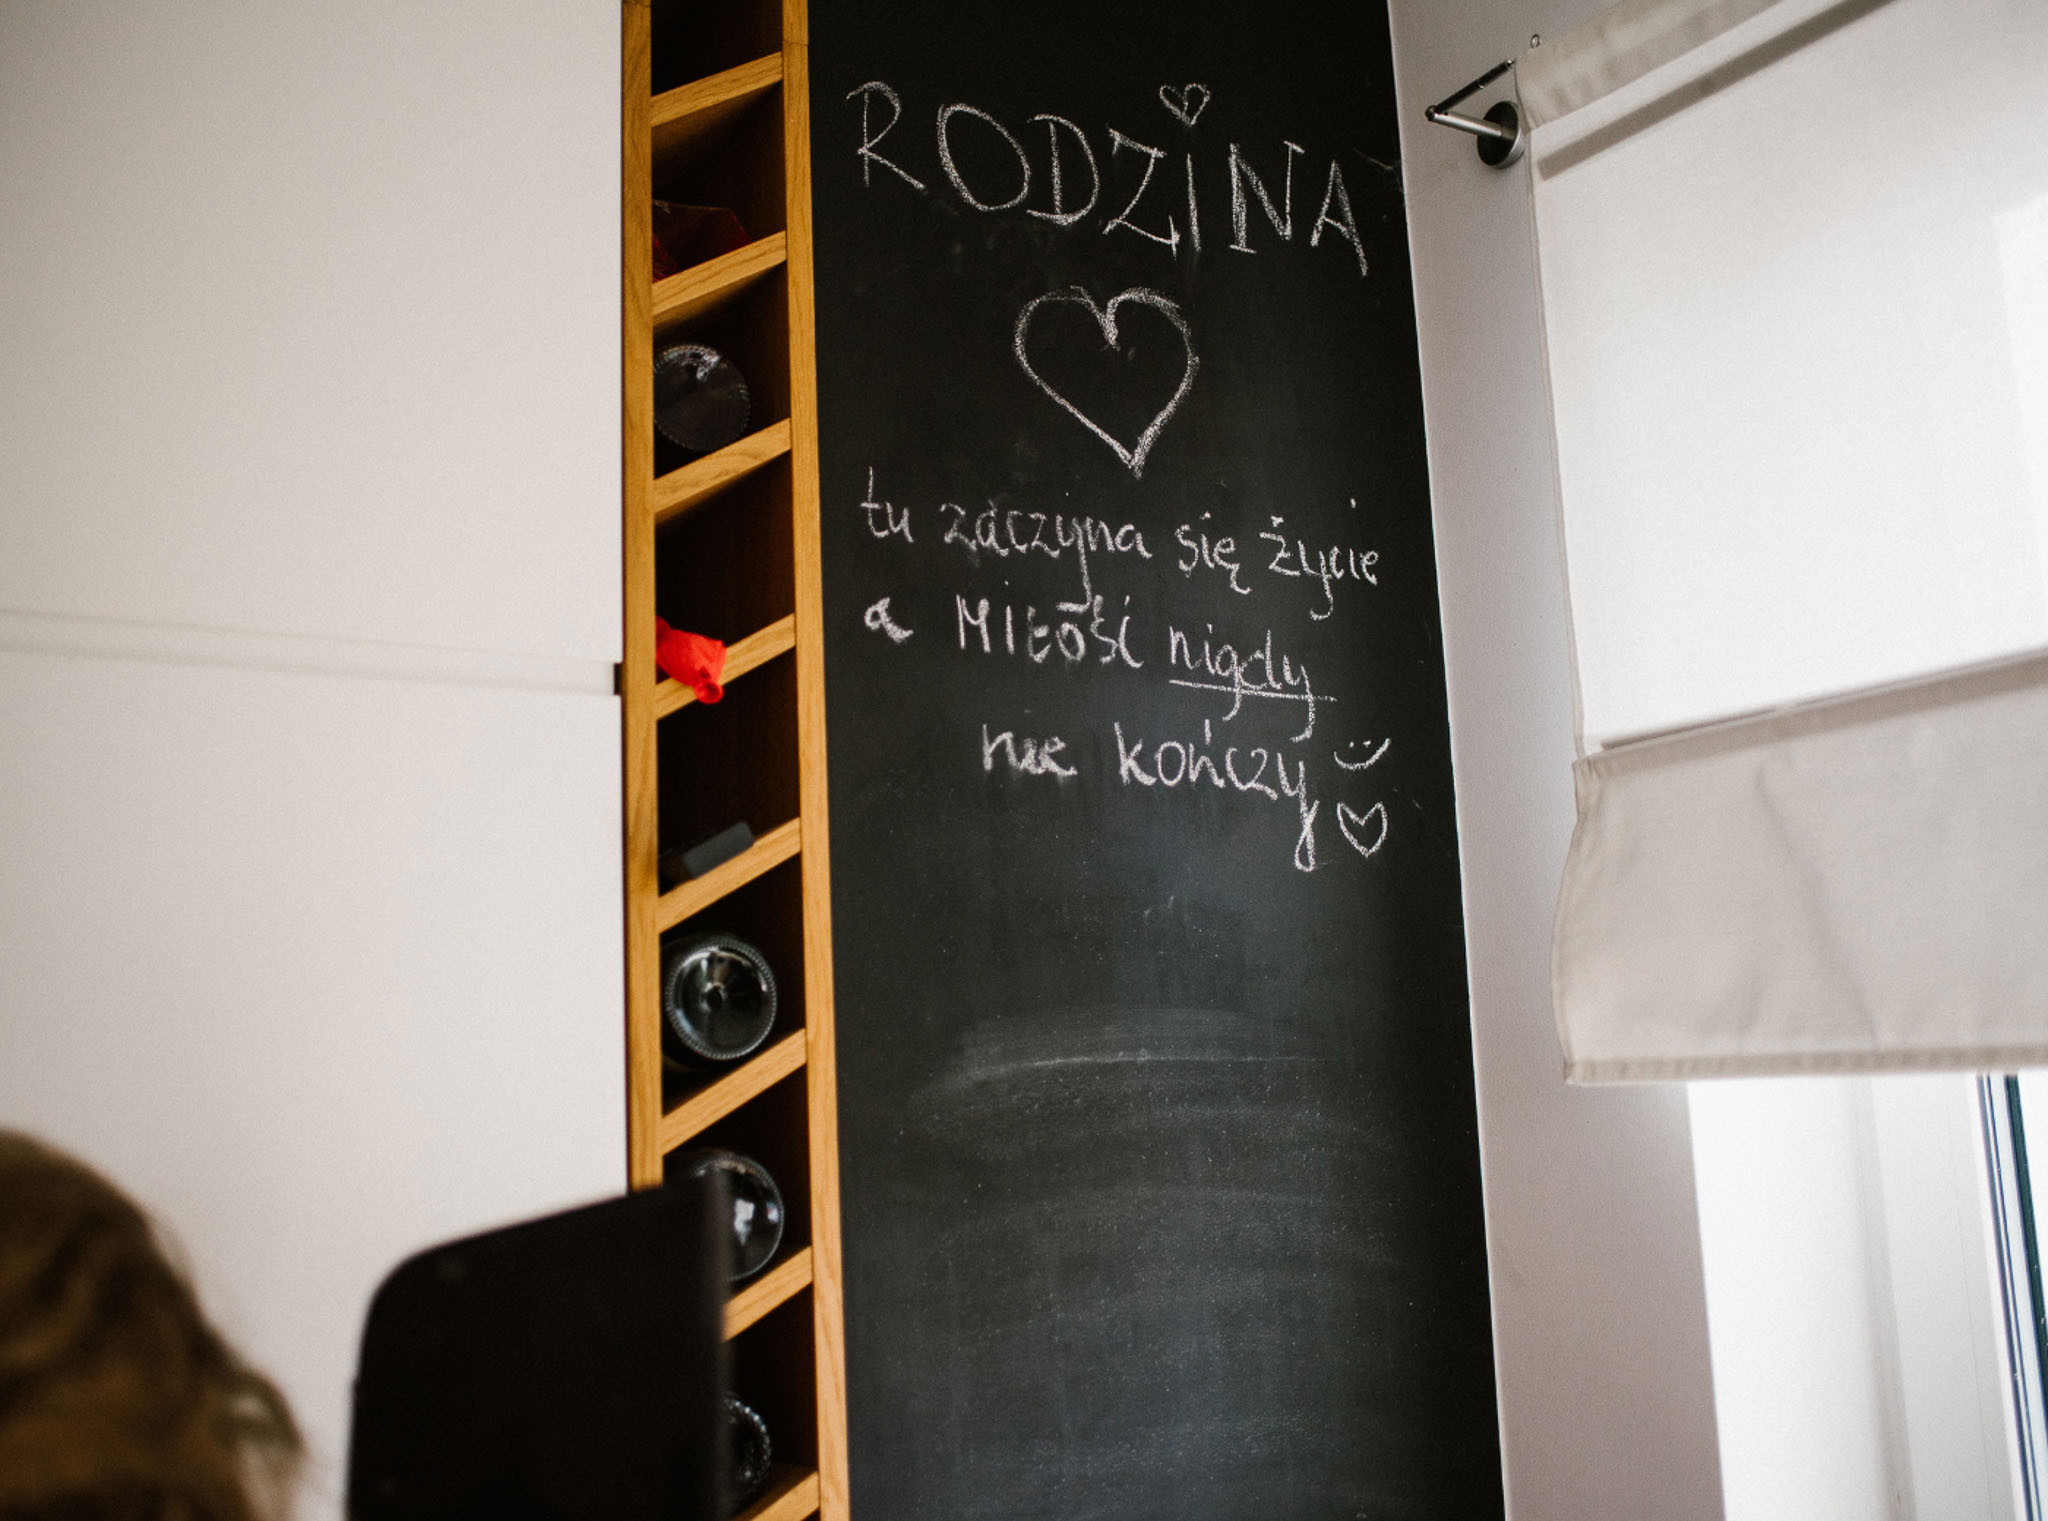 RODZINA
tu zaczyna się życie
a MIŁOŚĆ nigdy
nie kończy